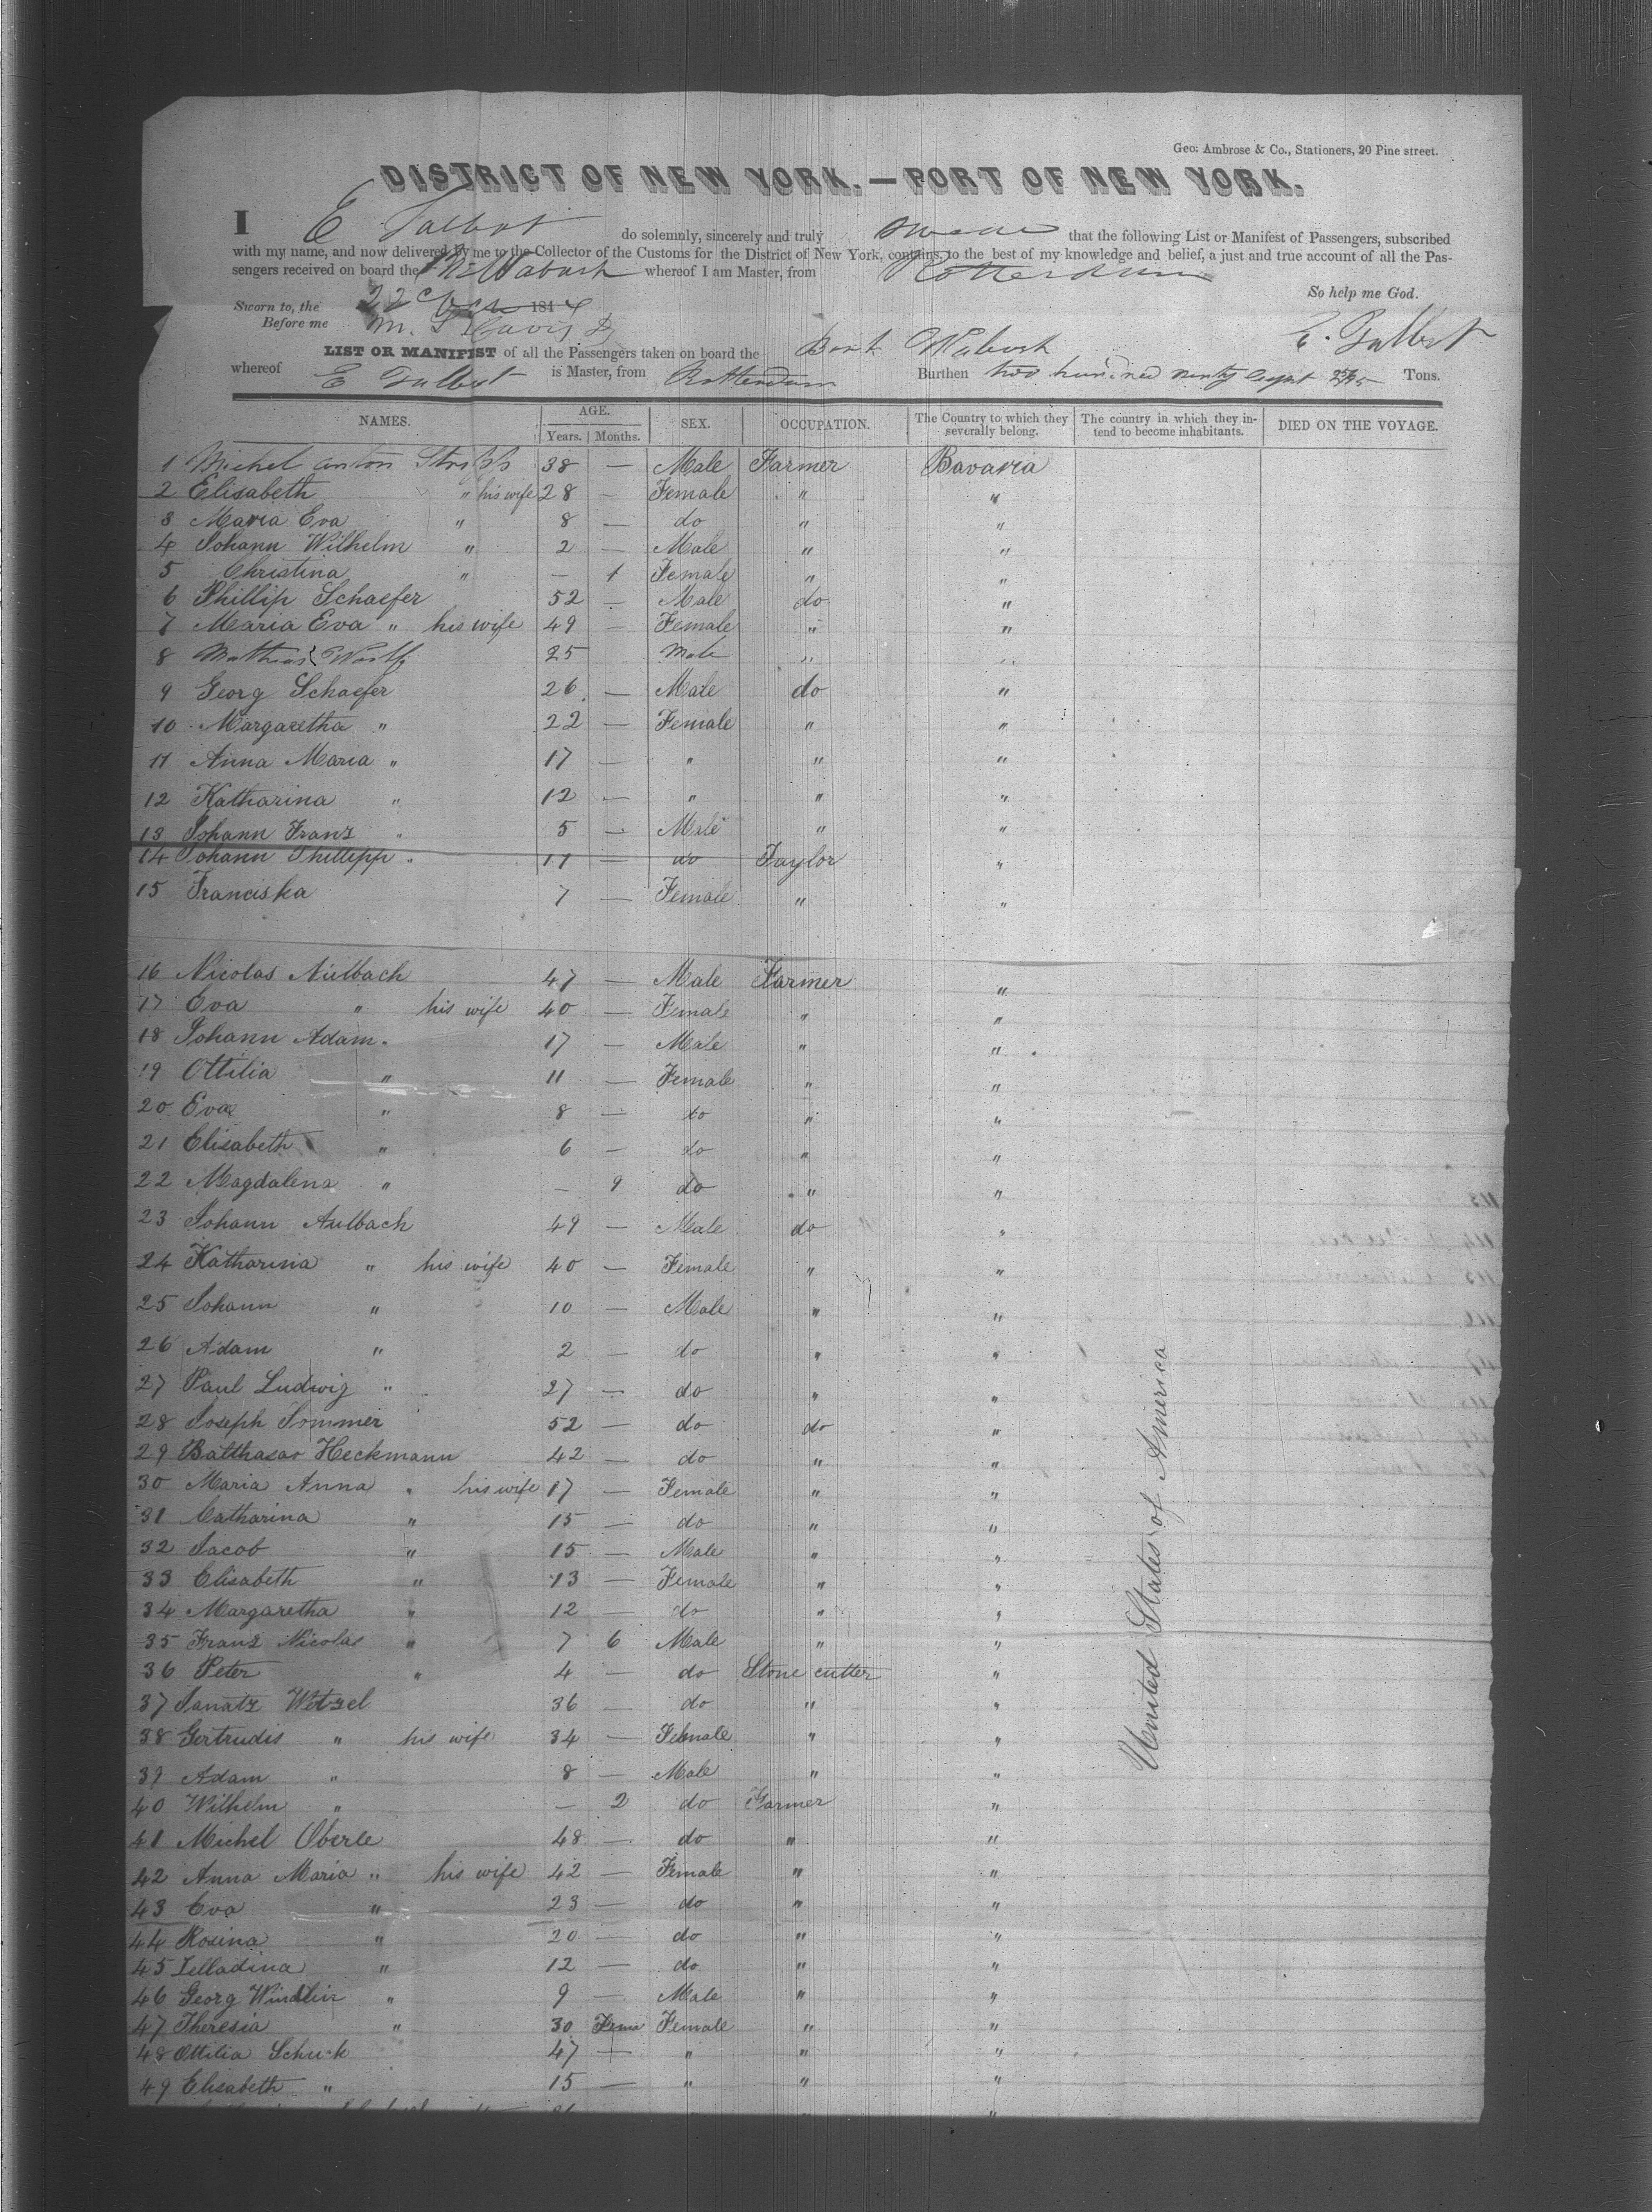 Geo. Ambrose & Co., Stationers, 20 Pine street.
DISTRICT OF NEW YORK.—PORT OF NEW YORK.
I E Talbot do solemnly, sincerely and truly swear that the following List or Manifest of Passengers, subscribed
with my name, and now delivered by me to the Collector of the Customs for the District of New York, contains, to the best of my knowledge and belief, a just and true account of all the Pas-
sengers received on board the Wabash whereof I am Master, from Rotterdam
So help me God.
Sworn to, the 22 184
Before me M. L Davis E. Talbot
LIST OR MANIFIST of all the Passengers taken on board the Bark Wabash
whereof E Talbot is Master, from Rotterdam Burthen two hundred ninty Tons.
NAMES. AGE. SEX. OCCUPATION. The Country to which they severally belong. The country in which they in-tend to become inhabitants. DIED ON THE VOYAGE.
Years. Months.
1 Michel anton 38 — Male Farmer Bavaria
2 Elisabeth " his wife 28 — Female " "
3 Maria Eva " 8 — do " "
4 Johann Wilhelm " 2 — Male " "
5 Christina " — 1 Female " "
6 Phillip Schaefer 52 — Male do "
7 Maria Eva " his wife 49 — Female " "
8 Mathias 25 Male " "
9 Georg Schaefer 26 — Male do "
10 Margaretha " 22 — Female " "
11 Anna Maria " 17 — " " "
12 Katharina " 12 — " " "
13 Johann Franz " 5 — Male " "
14 Johann Phillipp " 11 — do Taylor "
15 Franciska 7 — Female " "
16 Nicolas Aulbach 47 — Male Farmer "
17 Eva " his wife 40 — Female " "
18 Johann Adam " 17 — Male " "
19 Ottilia " 11 — Female " "
20 Eva " 8 — do " "
21 Elisabeth " 6 — do " "
22 Magdalena " — 9 do " "
23 Johann Aulbach 49 — Male do "
24 Katharina " his wife 40 — Female " "
25 Johann " 10 — Male " "
26 Adam " 2 — do " "
27 Paul Ludwig " 27 — do " "
28 Joseph Sommer 52 — do do "
29 Balthasar Heckmann 42 — do " "
30 Maria Anna " his wife 17 — Female " "
31 Catharina " 15 — do " "
32 Jacob " 15 — Male " "
33 Elisabeth " 13 — Female " "
34 Margaretha " 12 — do " "
35 Franz Nicolas " 7 6 Male " "
36 Peter " 4 — do Stone cutter "
37 Janatz Wetzel 36 — do " "
38 Gertrudis " his wife 34 — Female " "
39 Adam " 8 — Male " "
40 Wilhelm " — 2 do Farmer "
41 Michel Oberle 48 — do " "
42 Anna Maria " his wife 42 — Female " "
43 Eva " 23 — do " "
44 Rosina " 20 — do " "
45 Lelladina " 12 — do " "
46 Georg Windlin " 9 — Male " "
47 Theresia " 30 Fema Female " "
48 Ottilia Schuck 47 — " " "
49 Elisabeth " 15 — " " "
United States of America